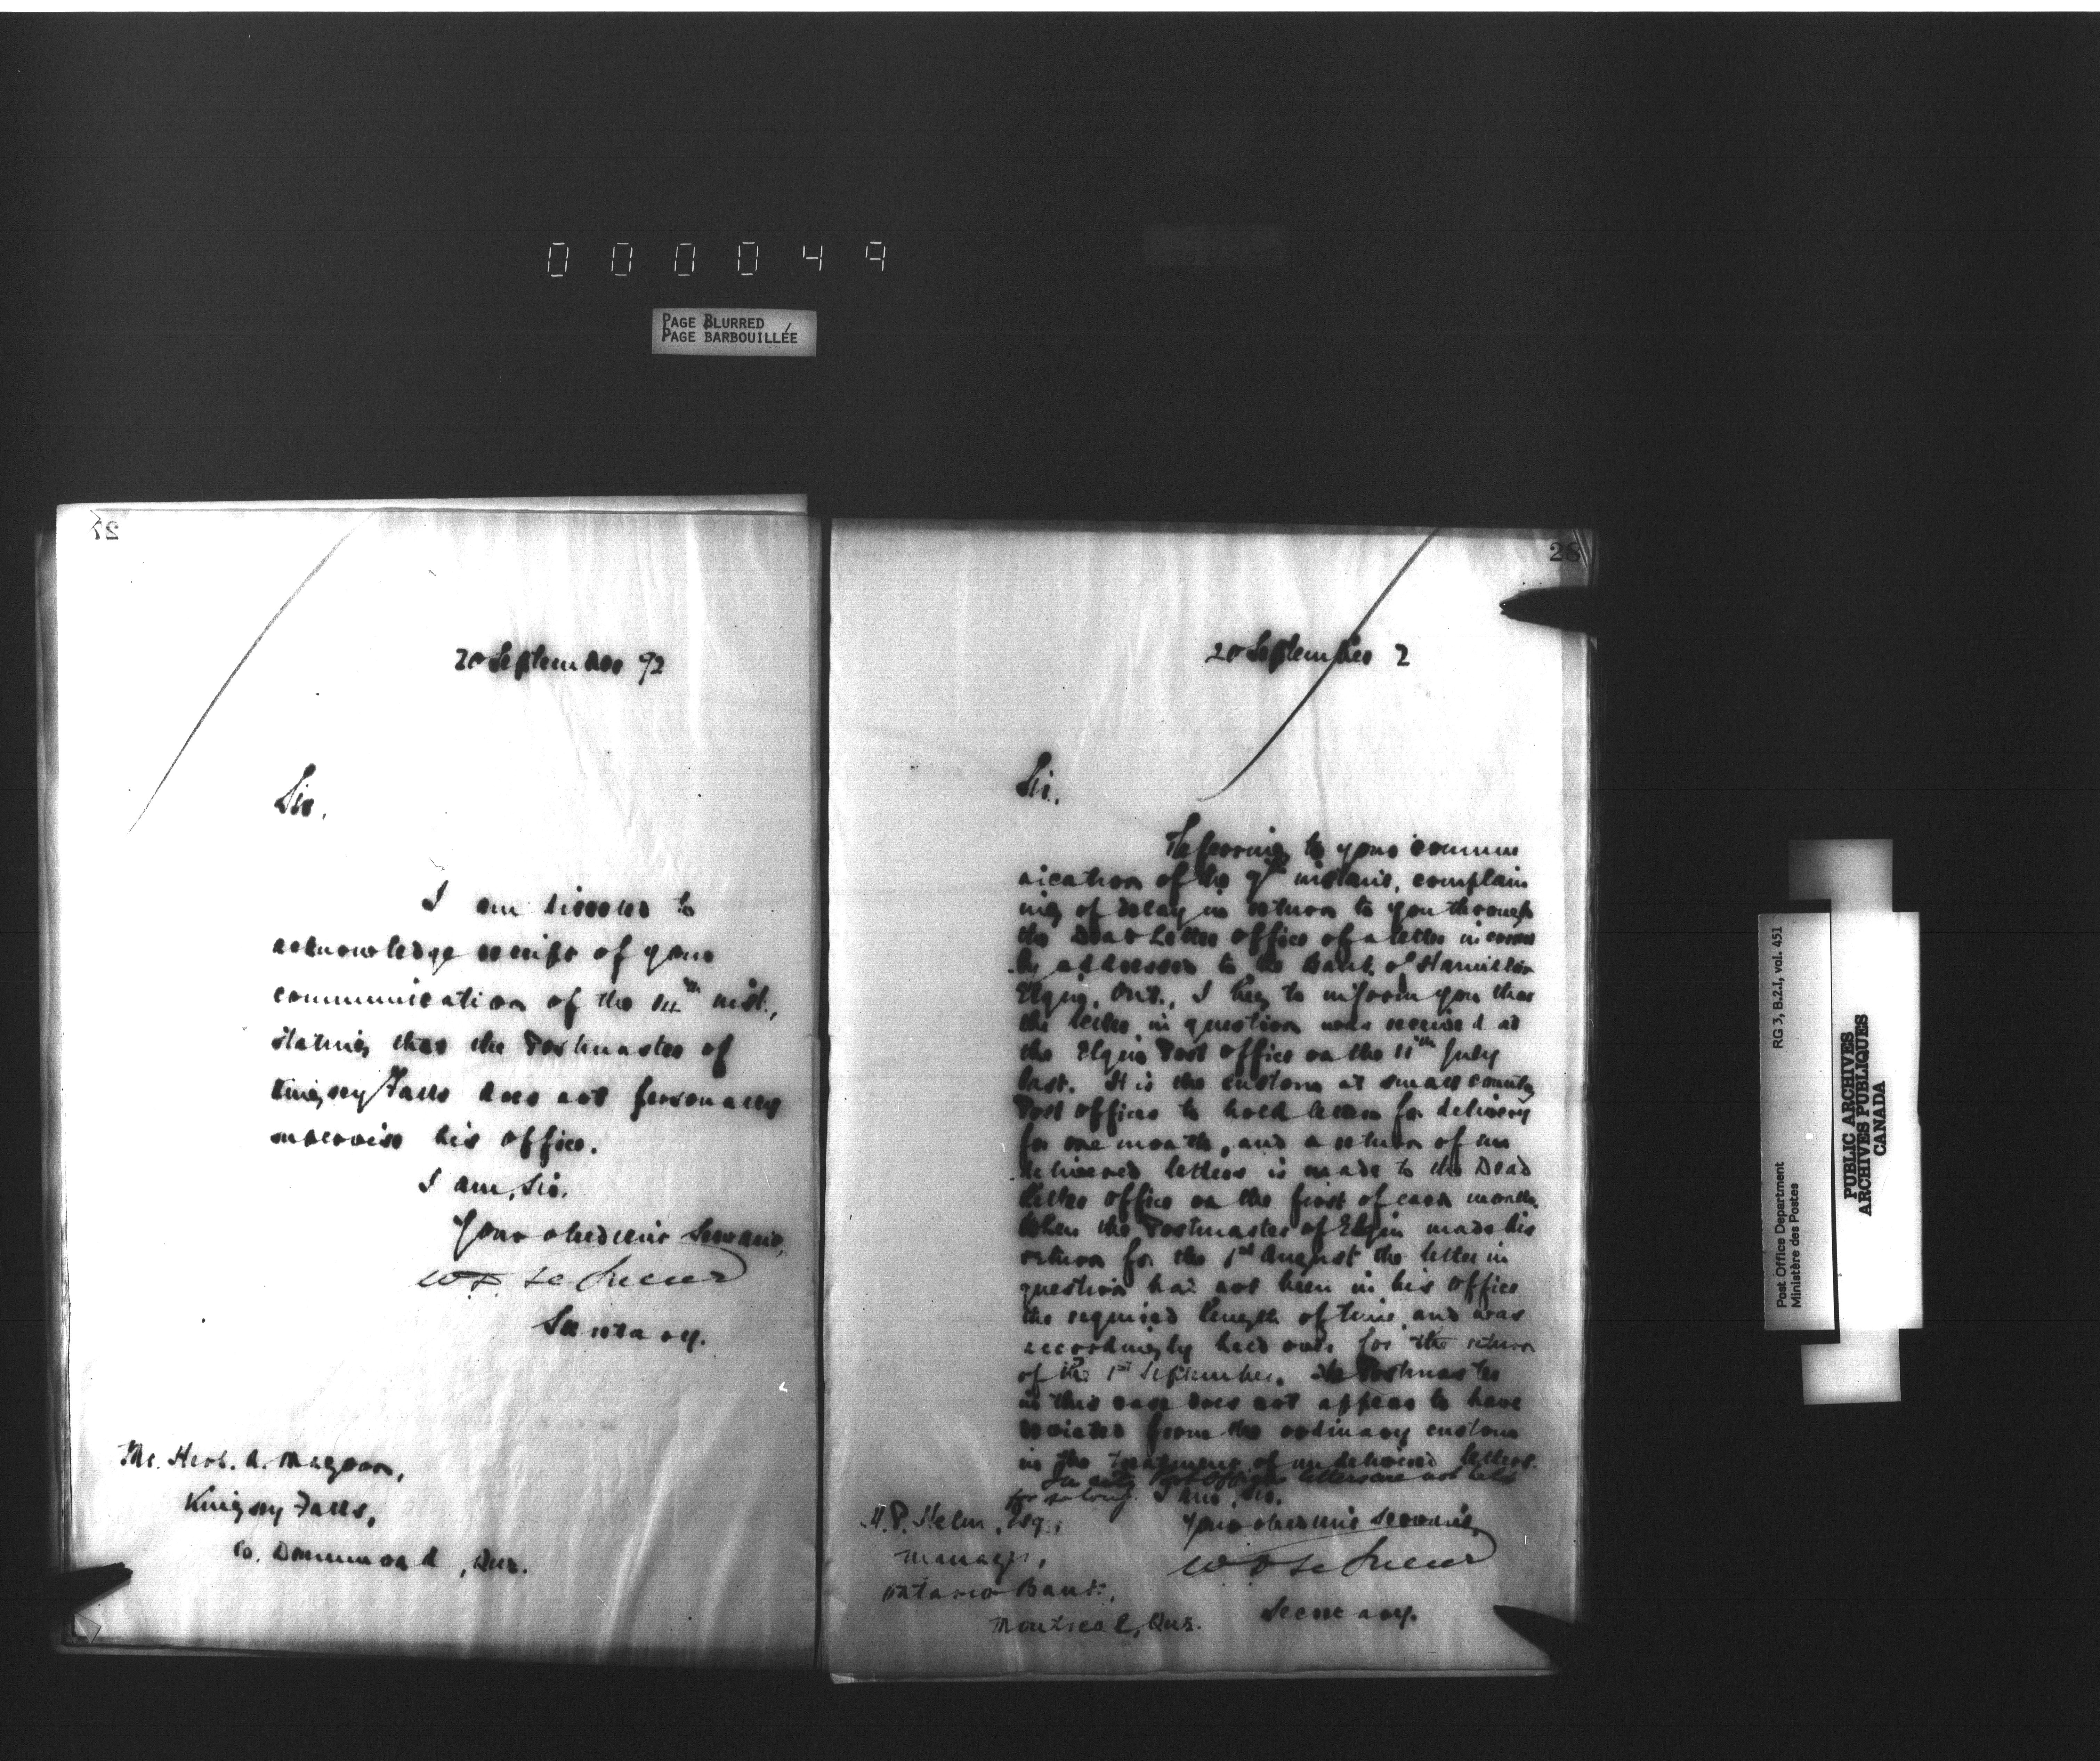 000049
PAGE BLURRED
PAGE BARBOUILLÉE
27
20 September 92
Sir,
I am directed to
acknowledge receipt of your
communication of the 14th inst.,
stating that the Postmaster of
Kingsey Falls does not personally
supervise his office.
I am, Sir,
Your obedient Servant,
W D Le Sueur
Secretary.
Mr. Herb. A. Magoon,
Kingsey Falls,
Co. Drummond, Que.
28
20 September 2
Sir,
Referring to your commu
nication of the 9th instant, complain
ing of delay in return to you through
the Dead Letter Office of a letter incorrect
ly addressed to the Bank of Hamilton
Elgin, Ont., I beg to inform you that
the letter in question was received at
the Elgin Post Office on the 11th July
last. It is the custom at small country
Post Offices to hold letters for delivery
for one month, and a return of un
delivered letters is made to the Dead
Letter Office on the first of each month.
When the Postmaster of Elgin made his
return for the 1st August the letter in
question had not been in his office
the required length of time, and was
accordingly held over for the return
of the 1st September. The Postmaster
in this case does not appear to have
deviated from the ordinary custom
in the treatment of undelivered letters.
In city Post Offices letters are not held
for so long. I am, Sir,
Your obedient Servant,
W D Le Sueur
Secretary.
H. P. Helm, Esq.,
Manager,
Ontario Bank,
Montreal, Que.
Post Office Department
Ministère des Postes
RG 3, B.2.I, vol. 451
PUBLIC ARCHIVES
ARCHIVES PUBLIQUES
CANADA